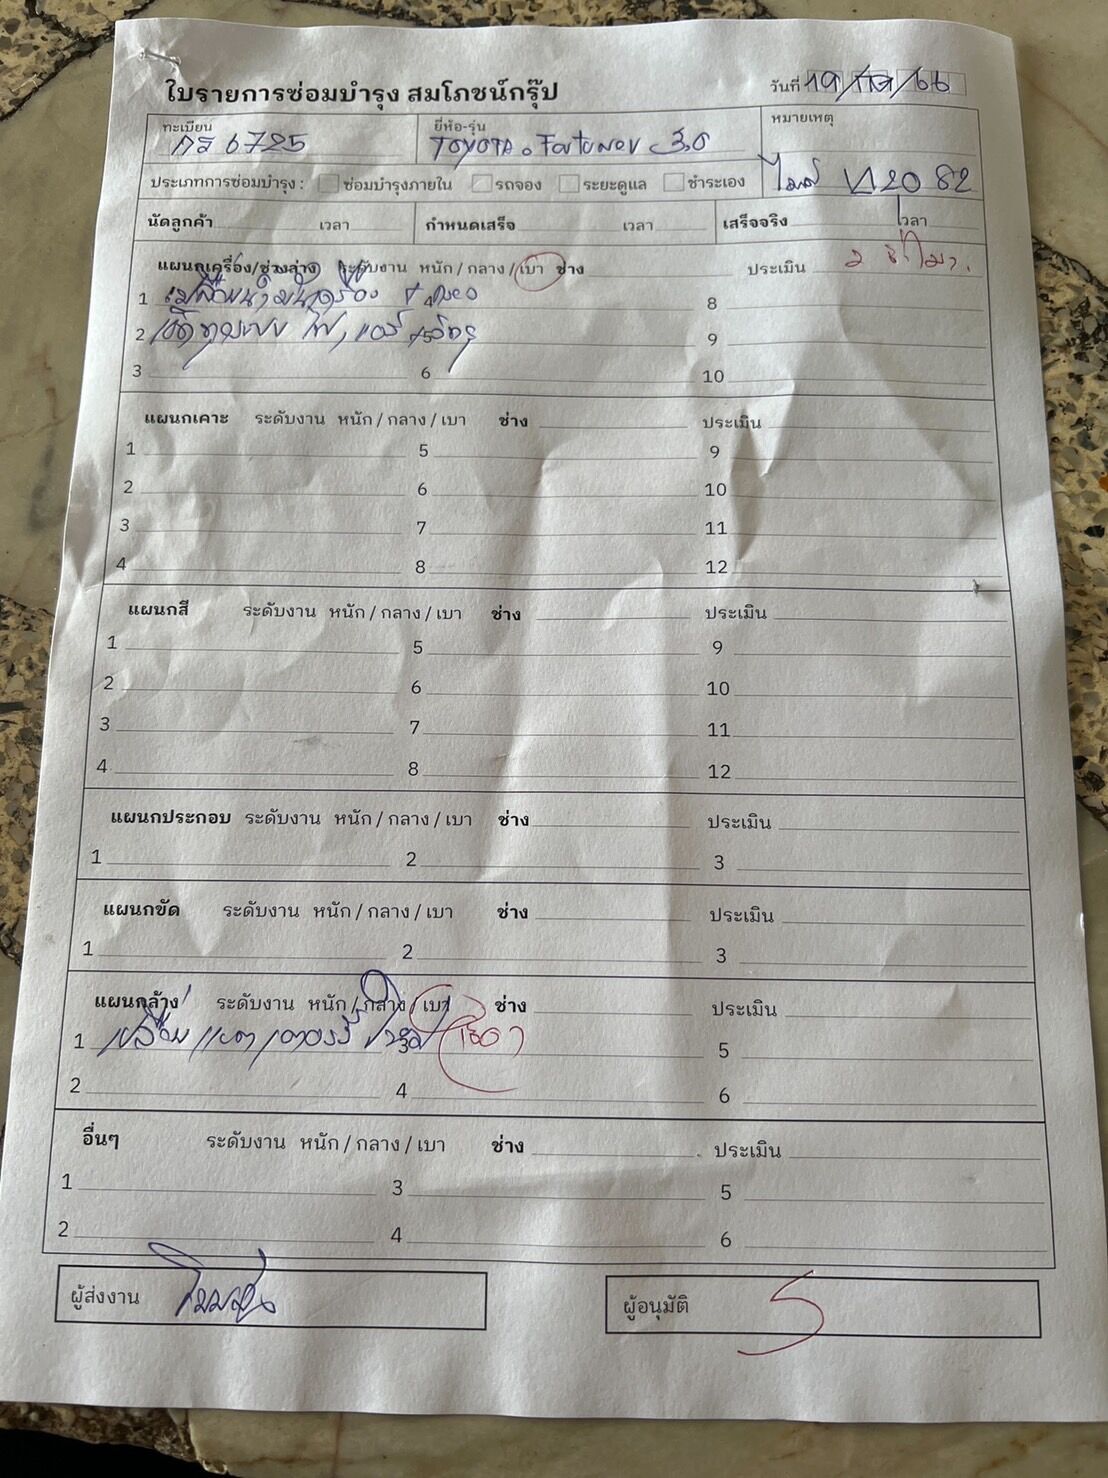 ใบรายการซ่อมบำรุง สมโภชน์กรุ๊ป
วันที่ 19 / / 66
ทะเบียน 6725
ยี่ห้อ-รุ่น TOYOTA . Fortuner 3.0
หมายเหตุ
ประเภทการซ่อมบำรุง : ซ่อมบำรุงภายใน รถจอง ระยะดูแล ชำระเอง
ไมล์
นัดลูกค้า เวลา กำหนดเสร็จ เวลา เสร็จจริง เวลา
แผนกเครื่อง/ช่วงล่าง ระดับงาน หนัก / กลาง / เบา ช่าง ประเมิน 2 ชั่วโมง.
1 เปลี่ยนน้ำมันเครื่อง 4 8
2 เช็ค 5 9
3 6 10
แผนกเคาะ ระดับงาน หนัก / กลาง / เบา ช่าง ประเมิน
1 5 9
2 6 10
3 7 11
4 8 12
แผนกสี ระดับงาน หนัก / กลาง / เบา ช่าง ประเมิน
1 5 9
2 6 10
3 7 11
4 8 12
แผนกประกอบ ระดับงาน หนัก / กลาง / เบา ช่าง ประเมิน
1 2 3
แผนกขัด ระดับงาน หนัก / กลาง / เบา ช่าง ประเมิน
1 2 3
แผนกล้าง ระดับงาน หนัก / กลาง / เบา ช่าง ประเมิน
1 เปลี่ยนแบตเตอรี่ 3 5
2 4 6
อื่นๆ ระดับงาน หนัก / กลาง / เบา ช่าง ประเมิน
1 3 5
2 4 6
ผู้ส่งงาน
ผู้อนุมัติ